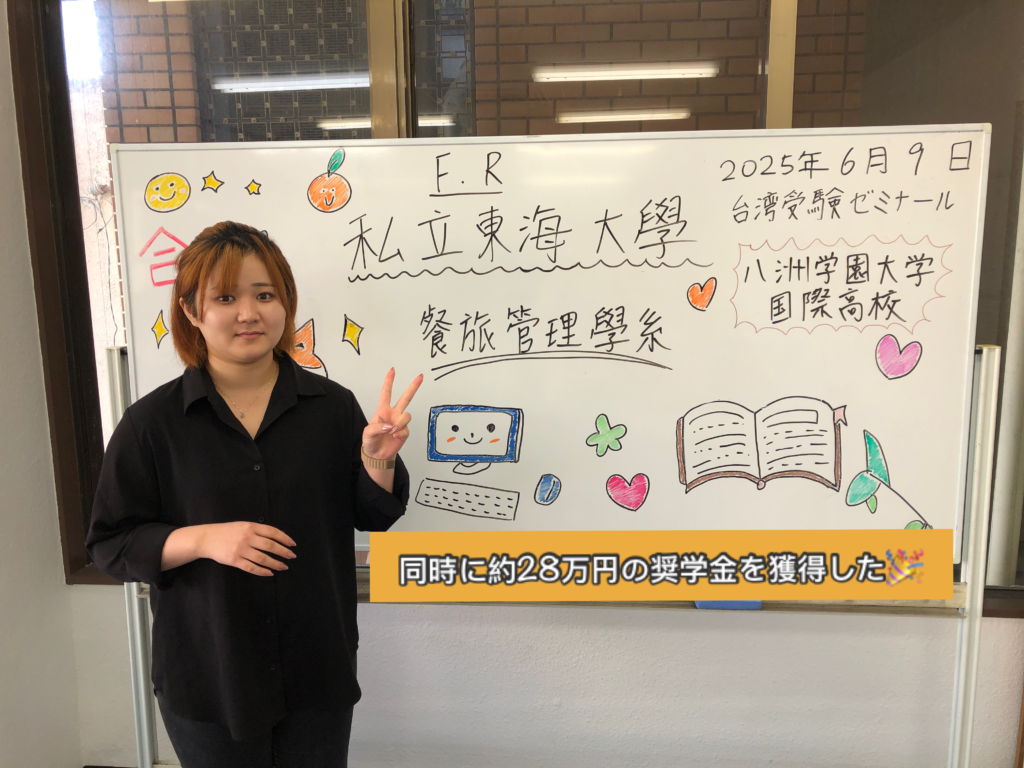 F.R
2025年6月9日
台湾受験ゼミナール
合
私立東海大學
八洲学園大学
国際高校
餐旅管理學系
同時に約28万円の奨学金を獲得した🎉